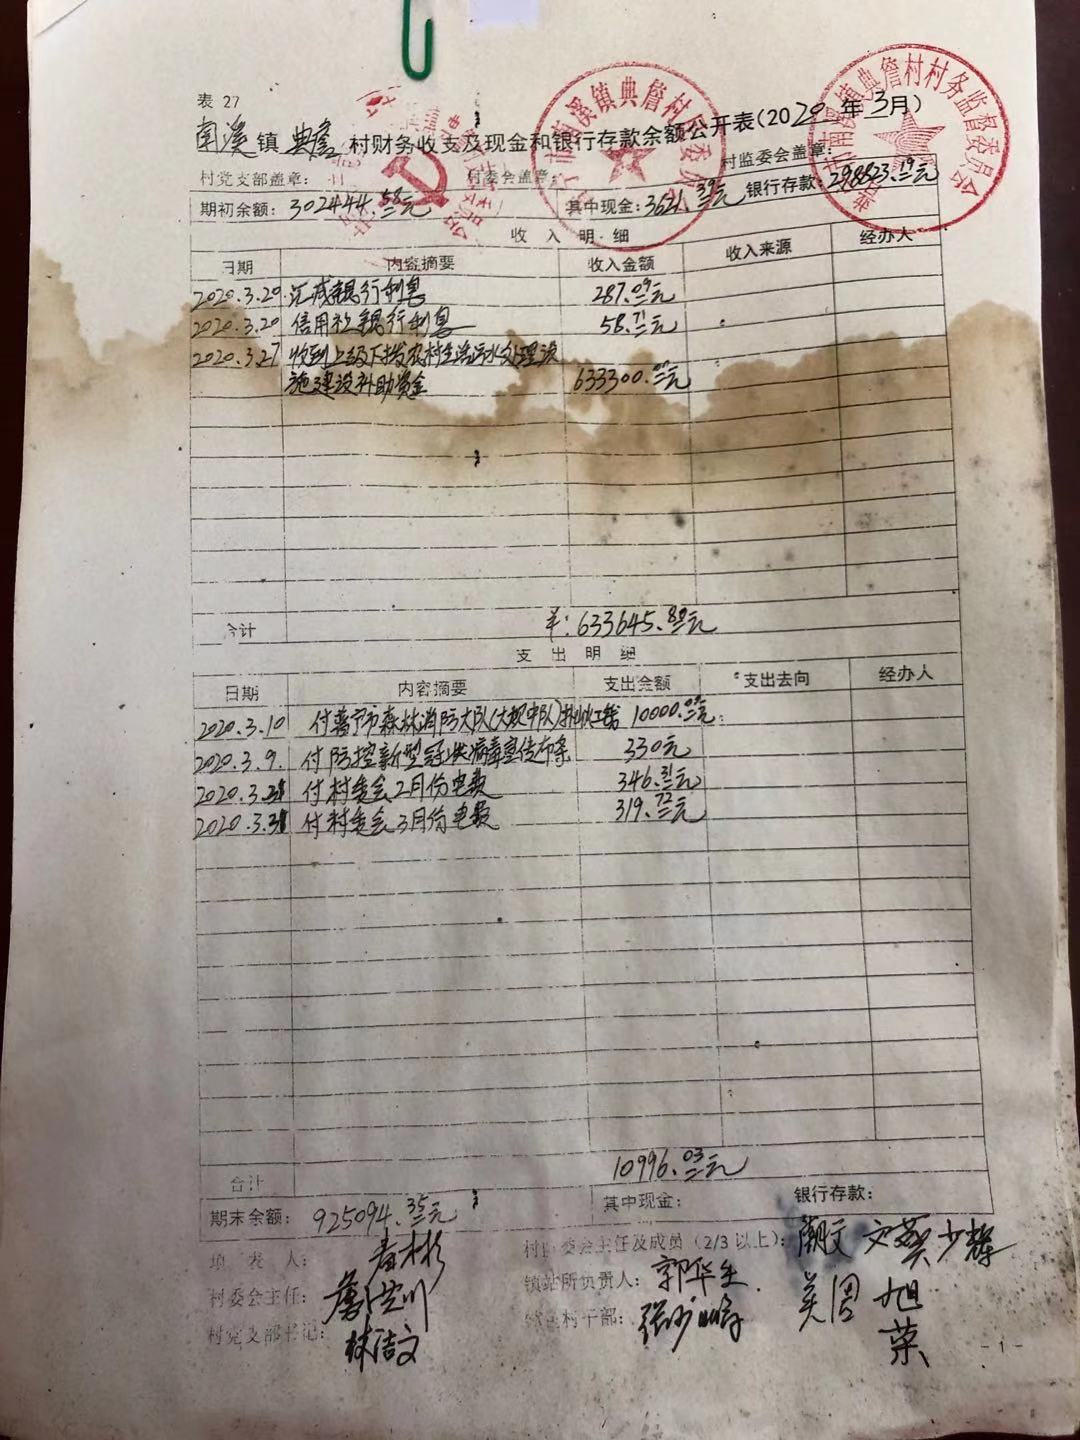 表 27
南溪镇典詹村财务收支及现金和银行存款余额公开表(2020年3月)
村党支部盖章: 村委会盖章: 村监委会盖章:
期初余额: 302444.58元 其中现金: 3621.39元 银行存款: 298823.19元
收 入 明 细
日期 内容摘要 收入金额 收入来源 经办人
2020.3.20 汇成银行利息 287.09元
2020.3.20 信用社银行利息 58.71元
2020.3.27 收到上级下拨农村生活污水处理设
施建设补助资金 633300.00元
合计 羊:633645.80元
支 出 明 细
日期 内容摘要 支出金额 支出去向 经办人
2020.3.10 付普宁市森林消防大队(大坝中队) 10000.00元
2020.3.9. 付防控新型冠状病毒宣传布条 330元
2020.3.31 付村委会2月份电费 346.31元
2020.3.31 付村委会3月份电费 319.72元
合计 10996.03元
期末余额: 925094.35元 其中现金: 银行存款:
填 表 人: 村监委会主任及成员(2/3以上):
村委会主任: 镇站所负责人: 郭华生
村党支部书记: 林洁文 村干部:
旭
- 1 -
南溪镇典詹村村务监督委员会